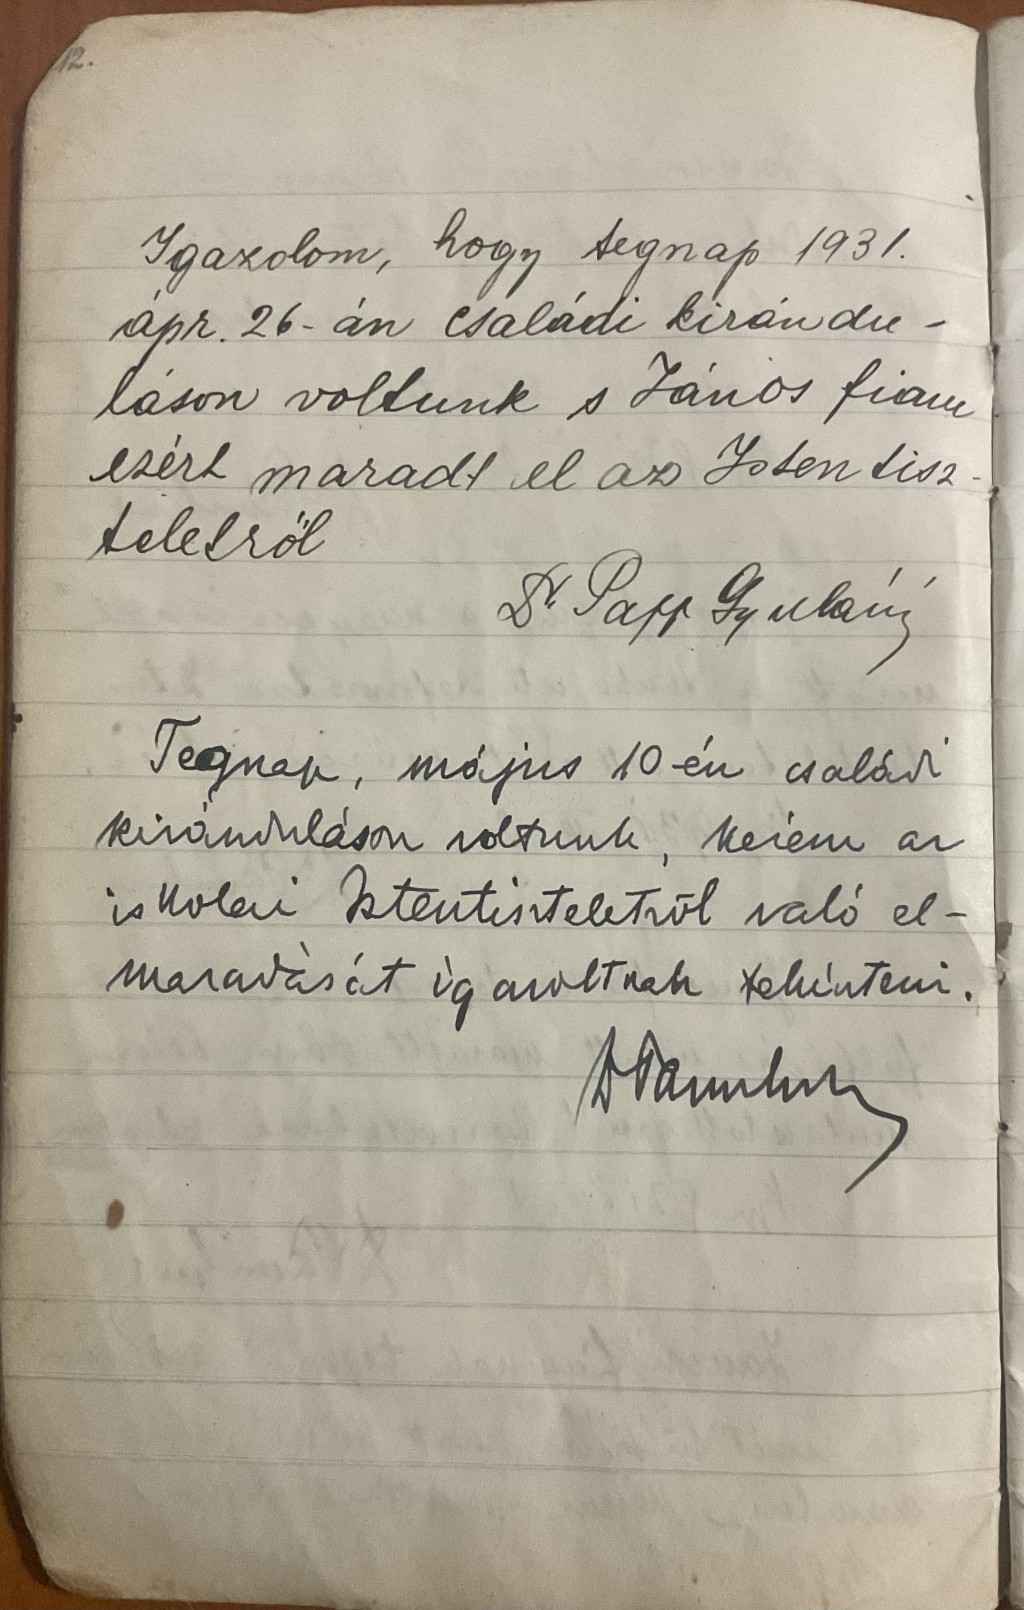 12.
Igazolom, hogy tegnap 1931.
ápr. 26-án családi kirándu-
láson voltunk s János fiam
ezért maradt el az Istentisz-
teletről
Dr. Papp Gyuláné
Tegnap, május 10-én családi
kiránduláson voltunk, kérem az
iskolai Istentiszteletről való el-
maradását igazoltnak tekinteni.